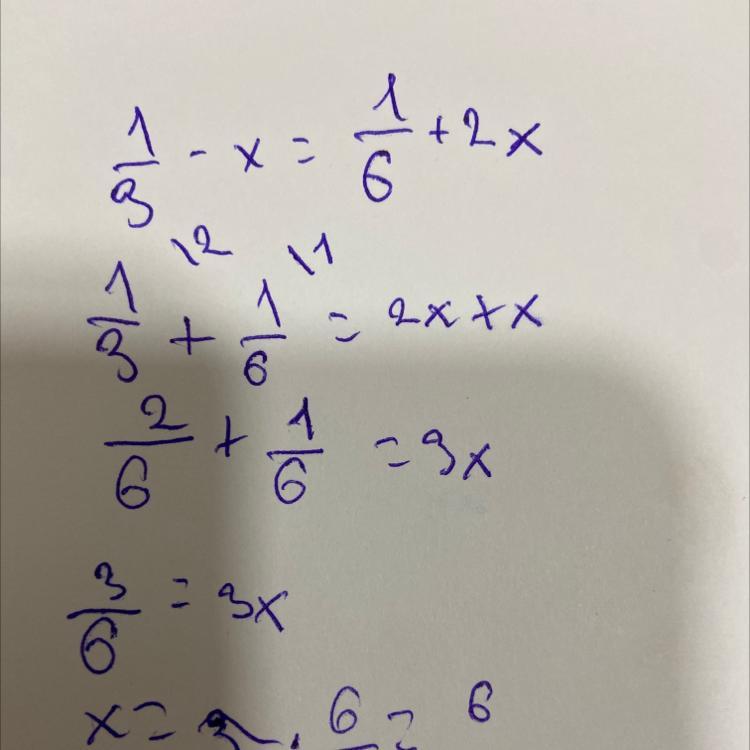 1/3 - x = 1/6 + 2x
1/3 \2 + 1/6 \1 = 2x + x
2/6 + 1/6 = 3x
3/6 = 3x
x = 3 · 6 = 6